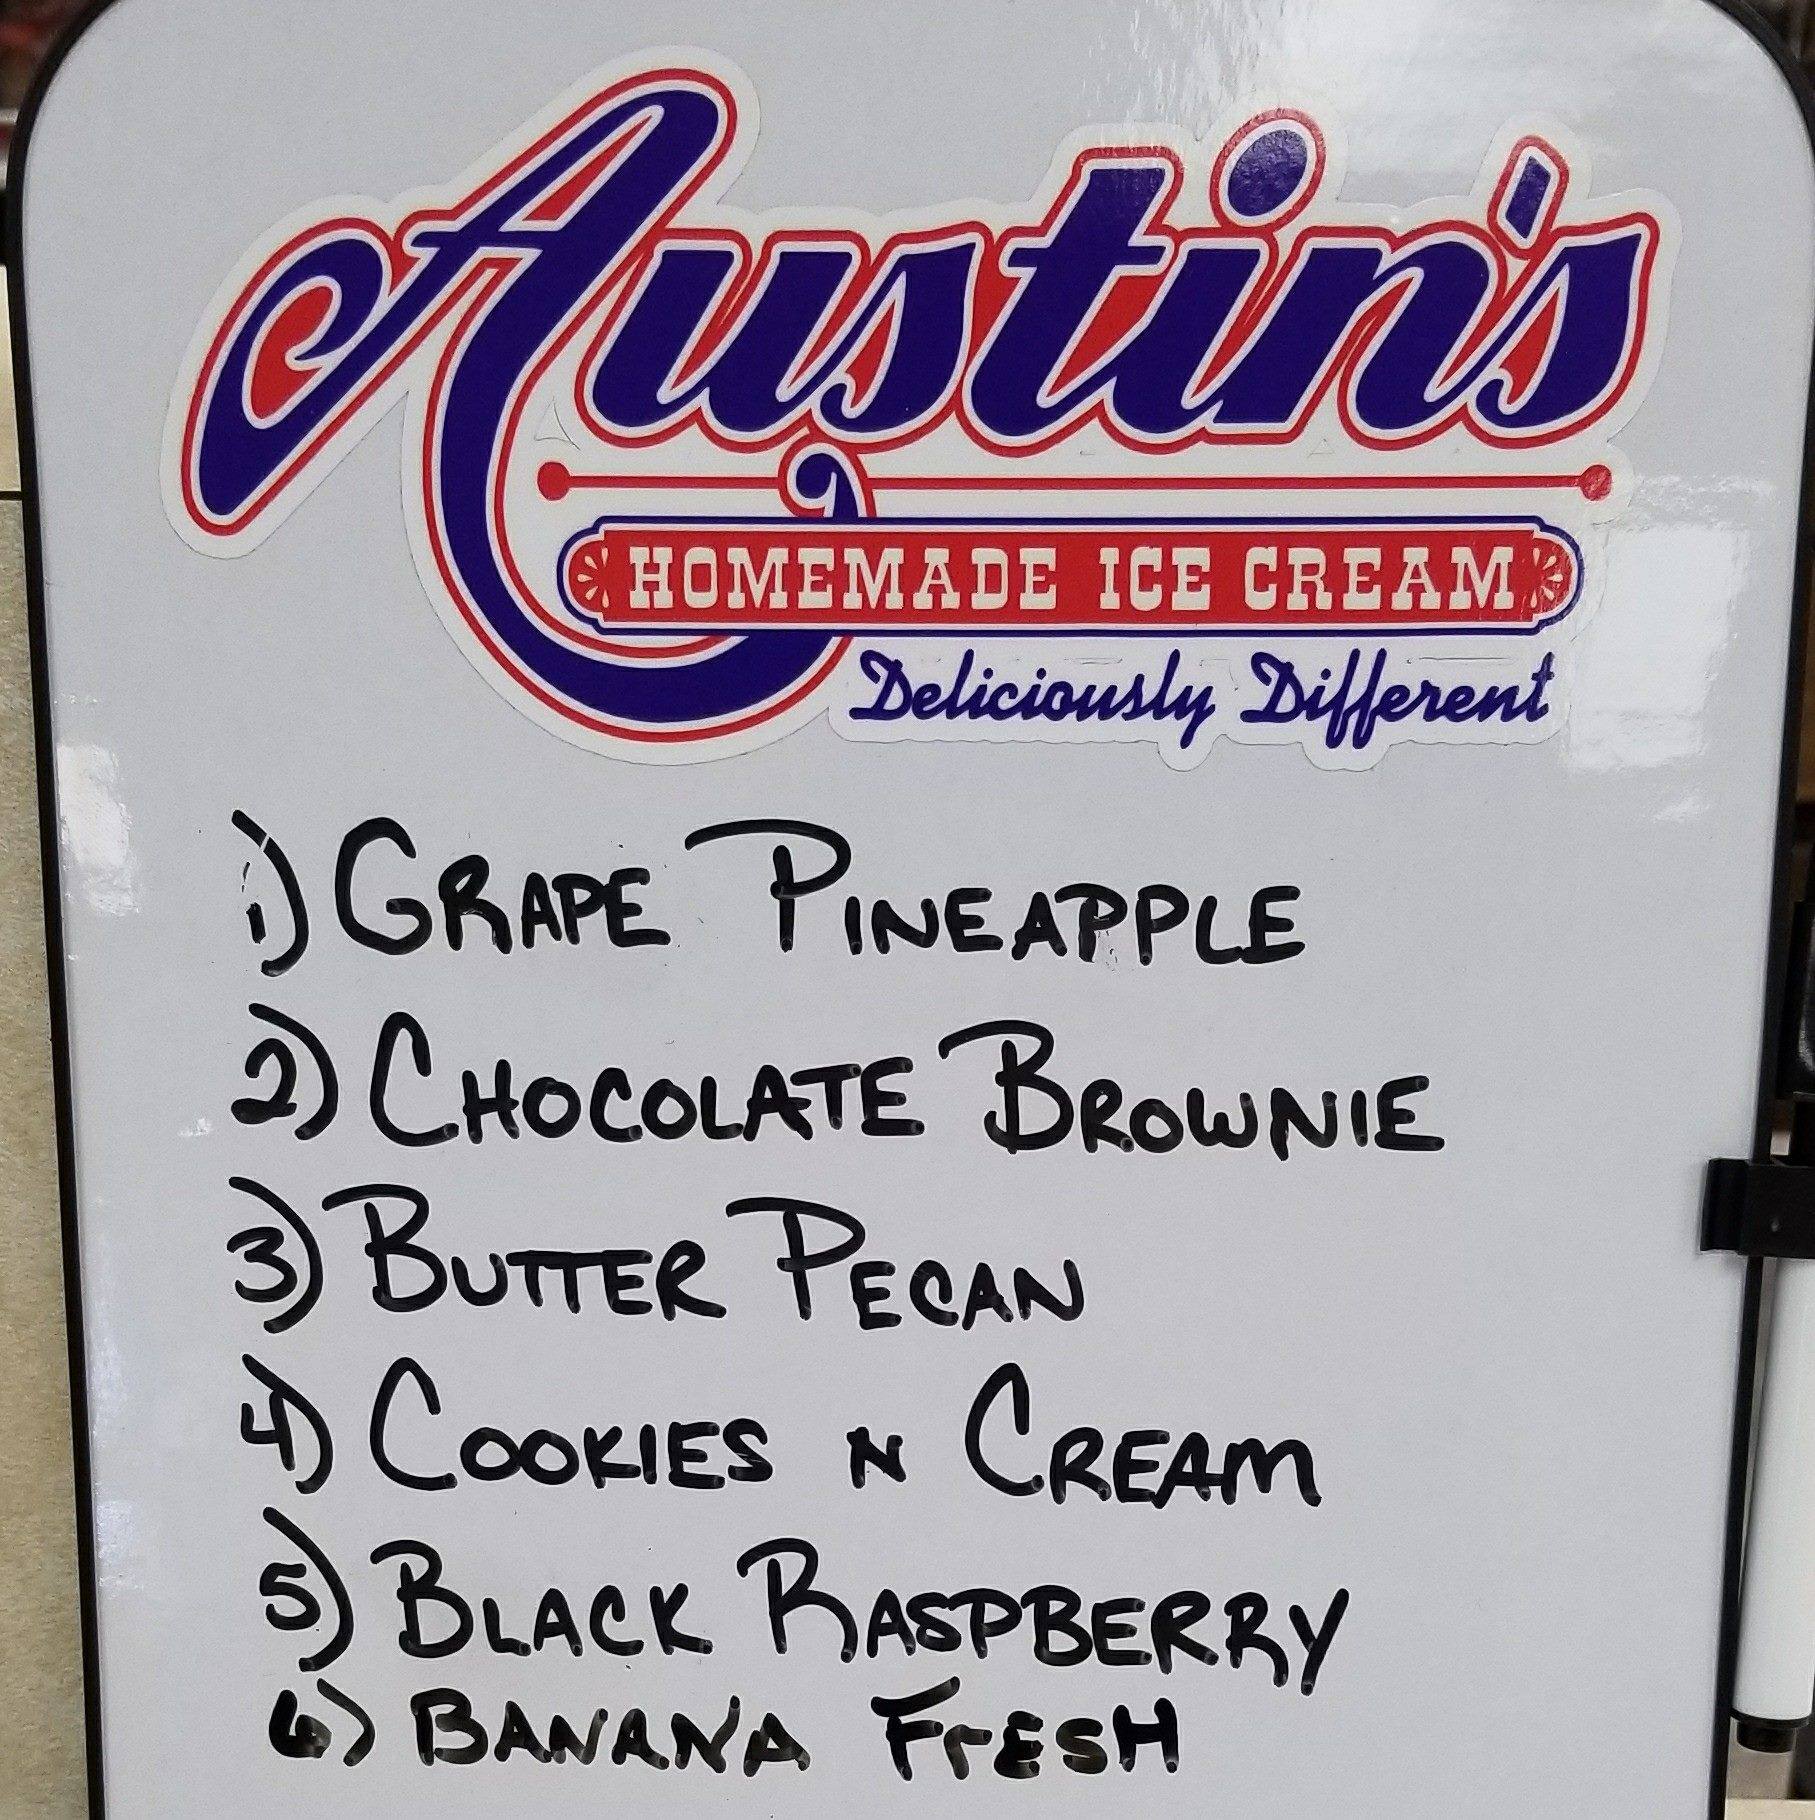 Austin's
HOMEMADE ICE CREAM
Deliciously Different
1) GRAPE PINEAPPLE
2) CHOCOLATE BROWNIE
3) BUTTER PECAN
4) COOKIES N CREAM
5) BLACK RASPBERRY
6) BANANA FrESH